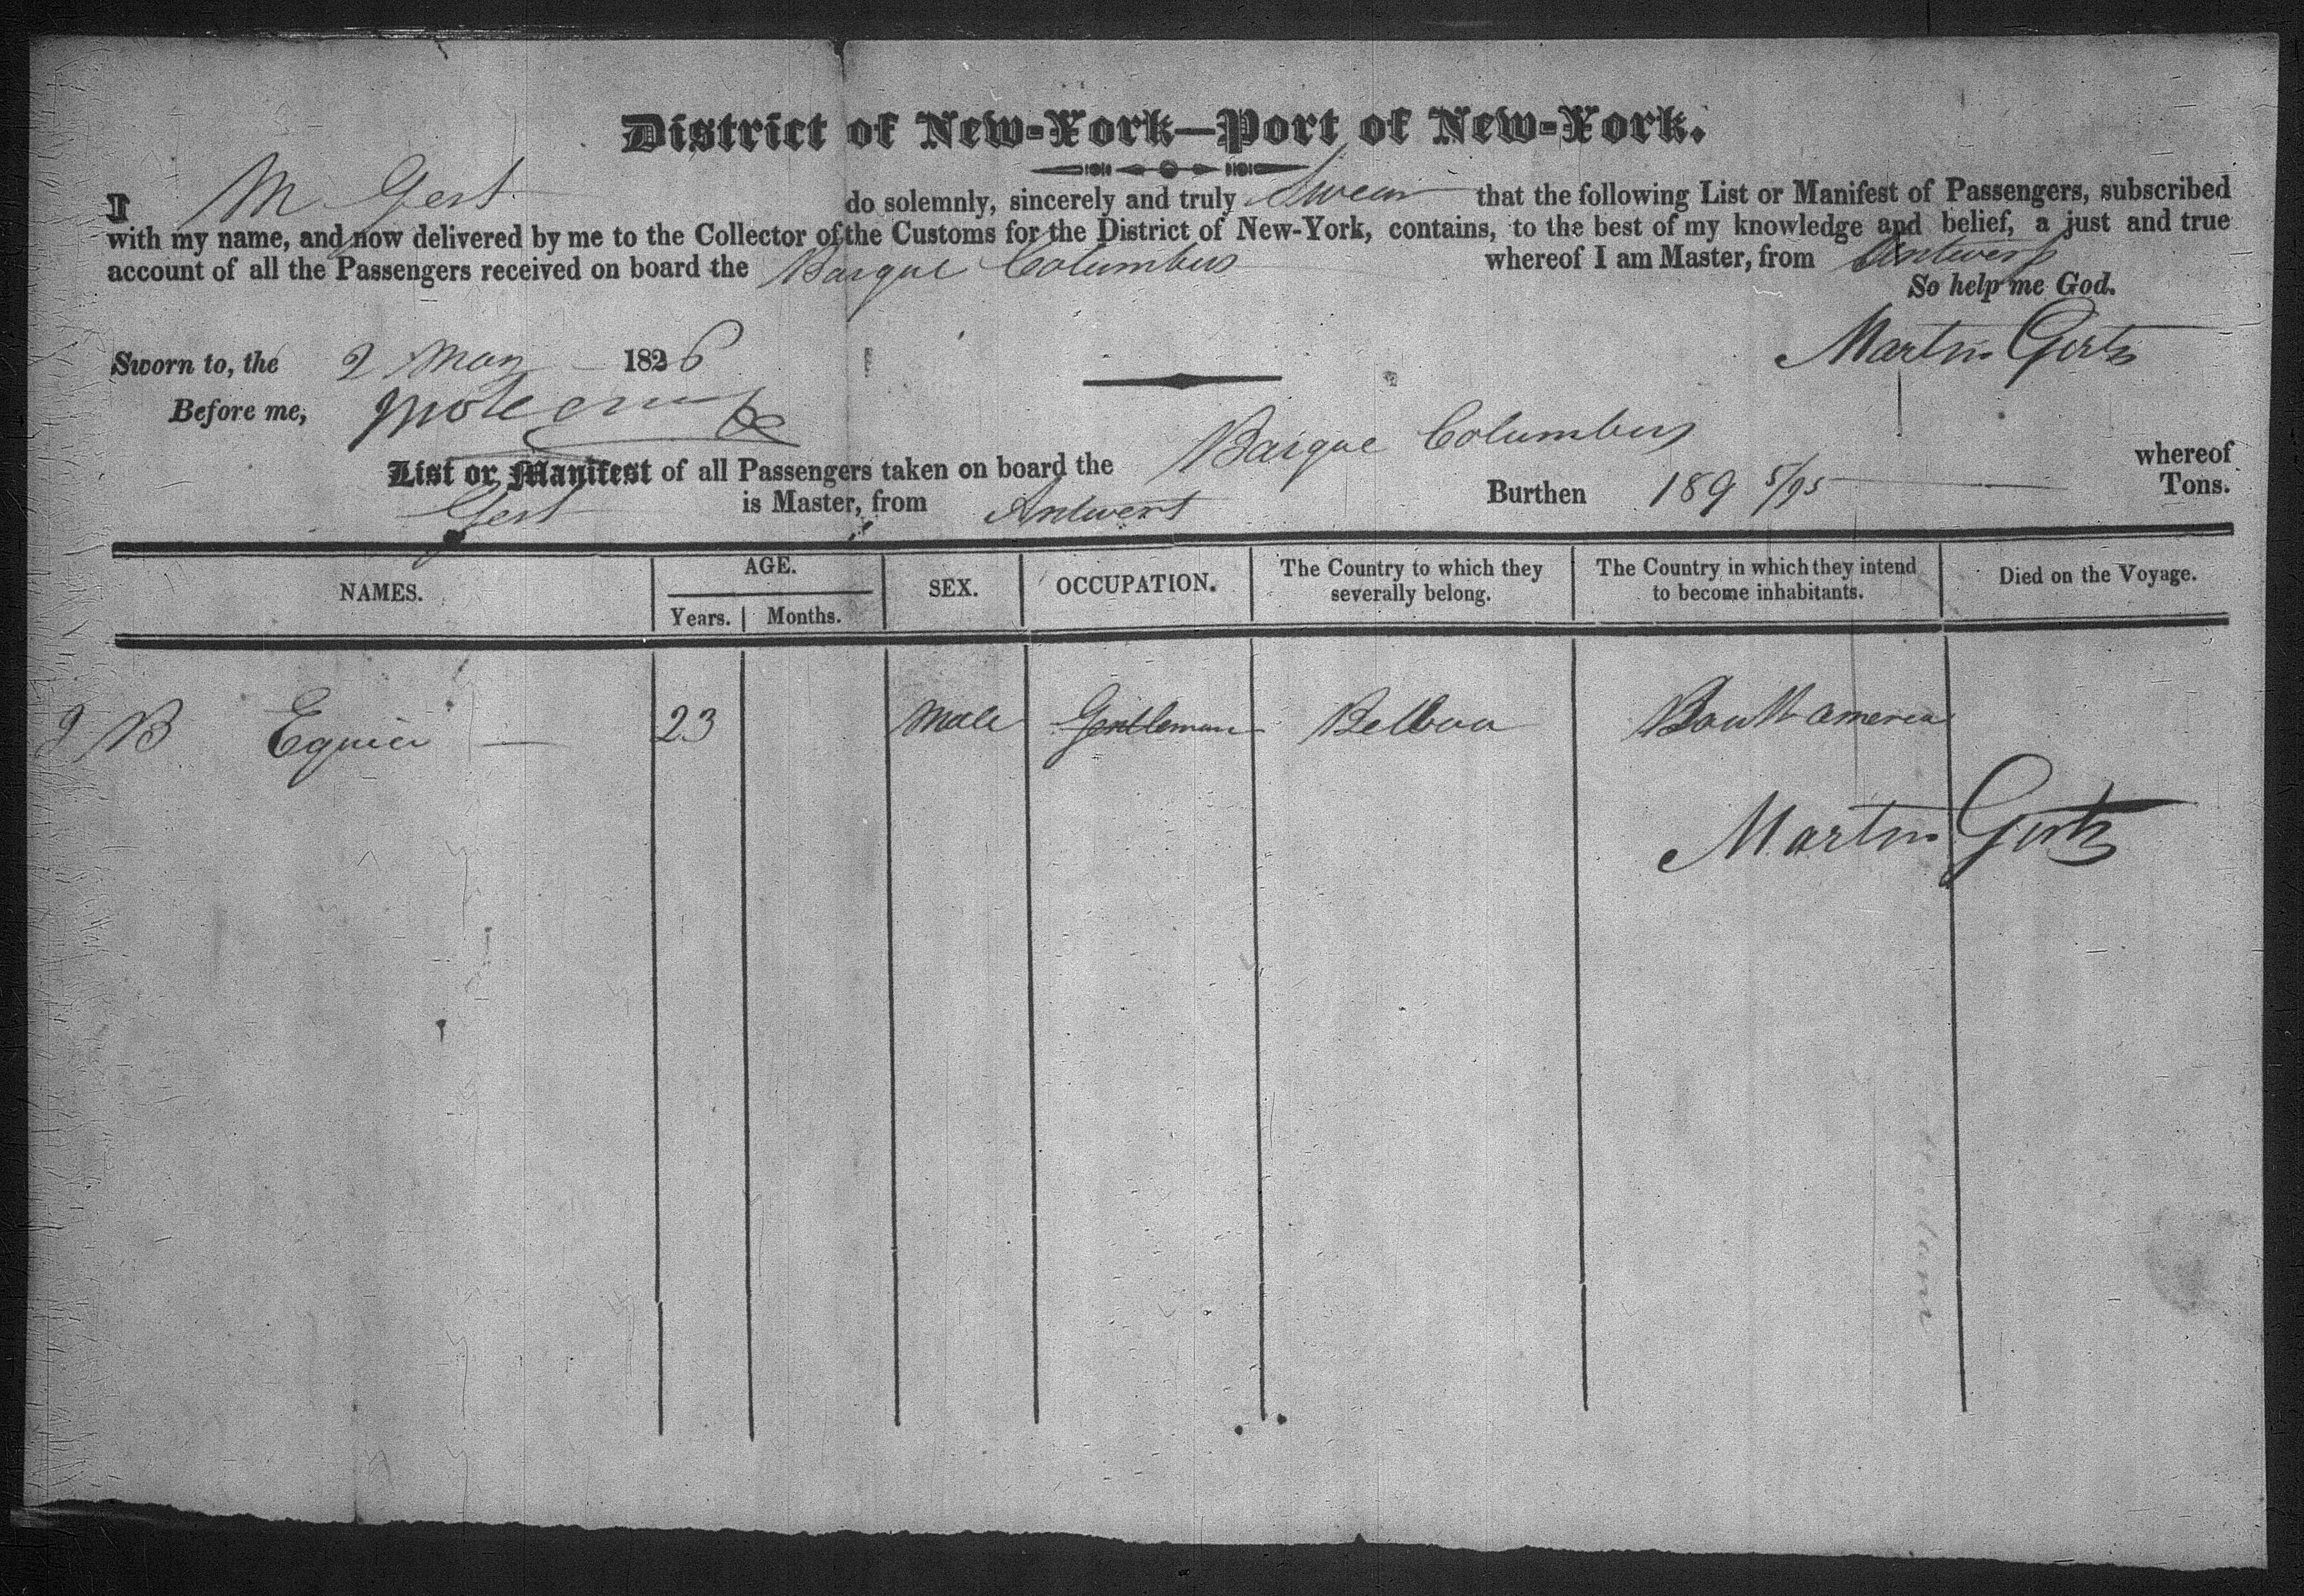 District of New-York—Port of New-York.
I M Gert do solemnly, sincerely and truly Swear that the following List or Manifest of Passengers, subscribed
with my name, and now delivered by me to the Collector of the Customs for the District of New-York, contains, to the best of my knowledge and belief, a just and true
account of all the Passengers received on board the Barque Columbus whereof I am Master, from Antwerp
So help me God.
Martin Gerts
Sworn to, the 2 May 1826
Before me,
List or Manifest of all Passengers taken on board the Barque Columbus whereof
Gert is Master, from Antwert Burthen 189 5/95 Tons.
NAMES. AGE. SEX. OCCUPATION. The Country to which they severally belong. The Country in which they intend to become inhabitants. Died on the Voyage.
Years. Months.
B Eguier — 23 Male Gentleman Belboa South america
Martin Gerts